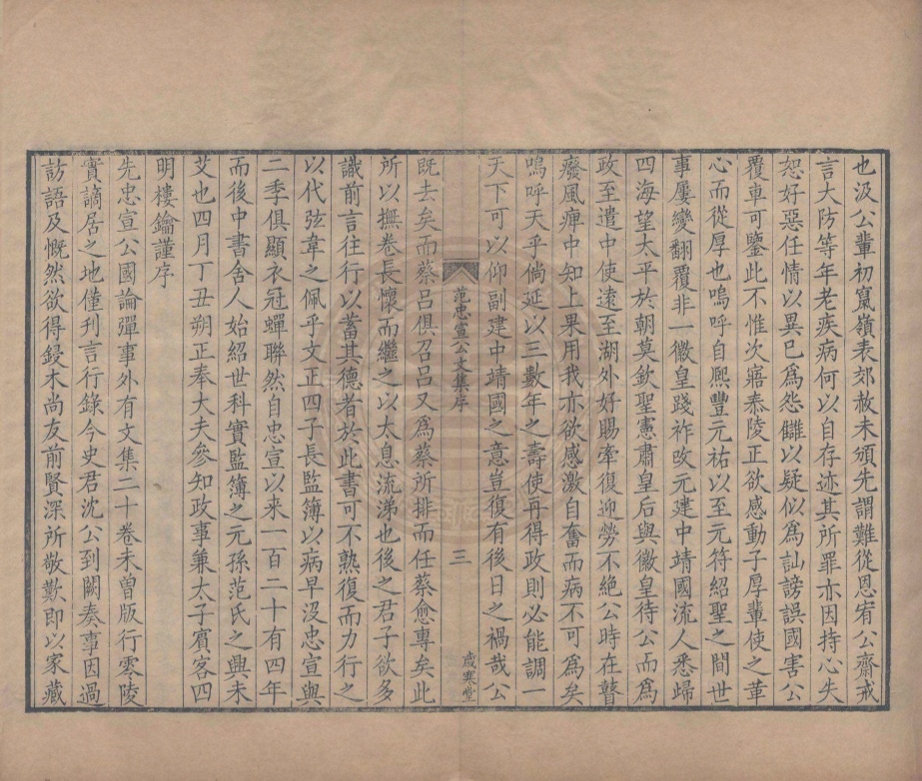 也汲公輩初竄嶺表郊赦未頒先謂難從恩宥公齋戒
言大防等年老疾病何以自存迹其所罪亦因持心失
恕好惡任情以異已爲怨讎以疑似爲訕謗誤國害公
覆車可鑒此不惟次寤泰陵正欲感動子厚輩使之革
心而從厚也嗚呼自熙豐元祐以至元符紹聖之間世
事屢變翻覆非一徽皇踐祚改元建中靖國流人悉歸
四海望太平於朝莫欽聖憲肅皇后與徽皇待公而爲
政至遣中使遠至湖外好賜牽復迎勞不絕公時在瞽
癈風痺中知上果用我亦欲感激自奮而病不可爲矣
嗚呼天乎倘延以三數年之壽使再得政則必能調一
天下可以仰副建中靖國之意豈復有後日之禍哉公
范忠宣公文集序
三
歲寒堂
既去矣而蔡呂俱召呂又爲蔡所排而任蔡愈專矣此
所以撫卷長懷而繼之以太息流涕也後之君子欲多
識前言往行以蓄其德者於此書可不熟復而力行之
以代弦韋之佩乎文正四子長監簿以病早沒忠宣與
二季俱顯衣冠蟬聯然自忠宣以來一百二十有四年
而後中書舍人始紹世科實監簿之元孫范氏之興未
艾也四月丁丑朔正奉大夫參知政事兼太子賓客四
明樓鑰謹序
先忠宣公國論彈事外有文集二十卷未曾版行零陵
實謫居之地僅刊言行錄今史君沈公到闕奏事因過
訪語及慨然欲得鋟木尚友前賢深所敬歎即以家藏